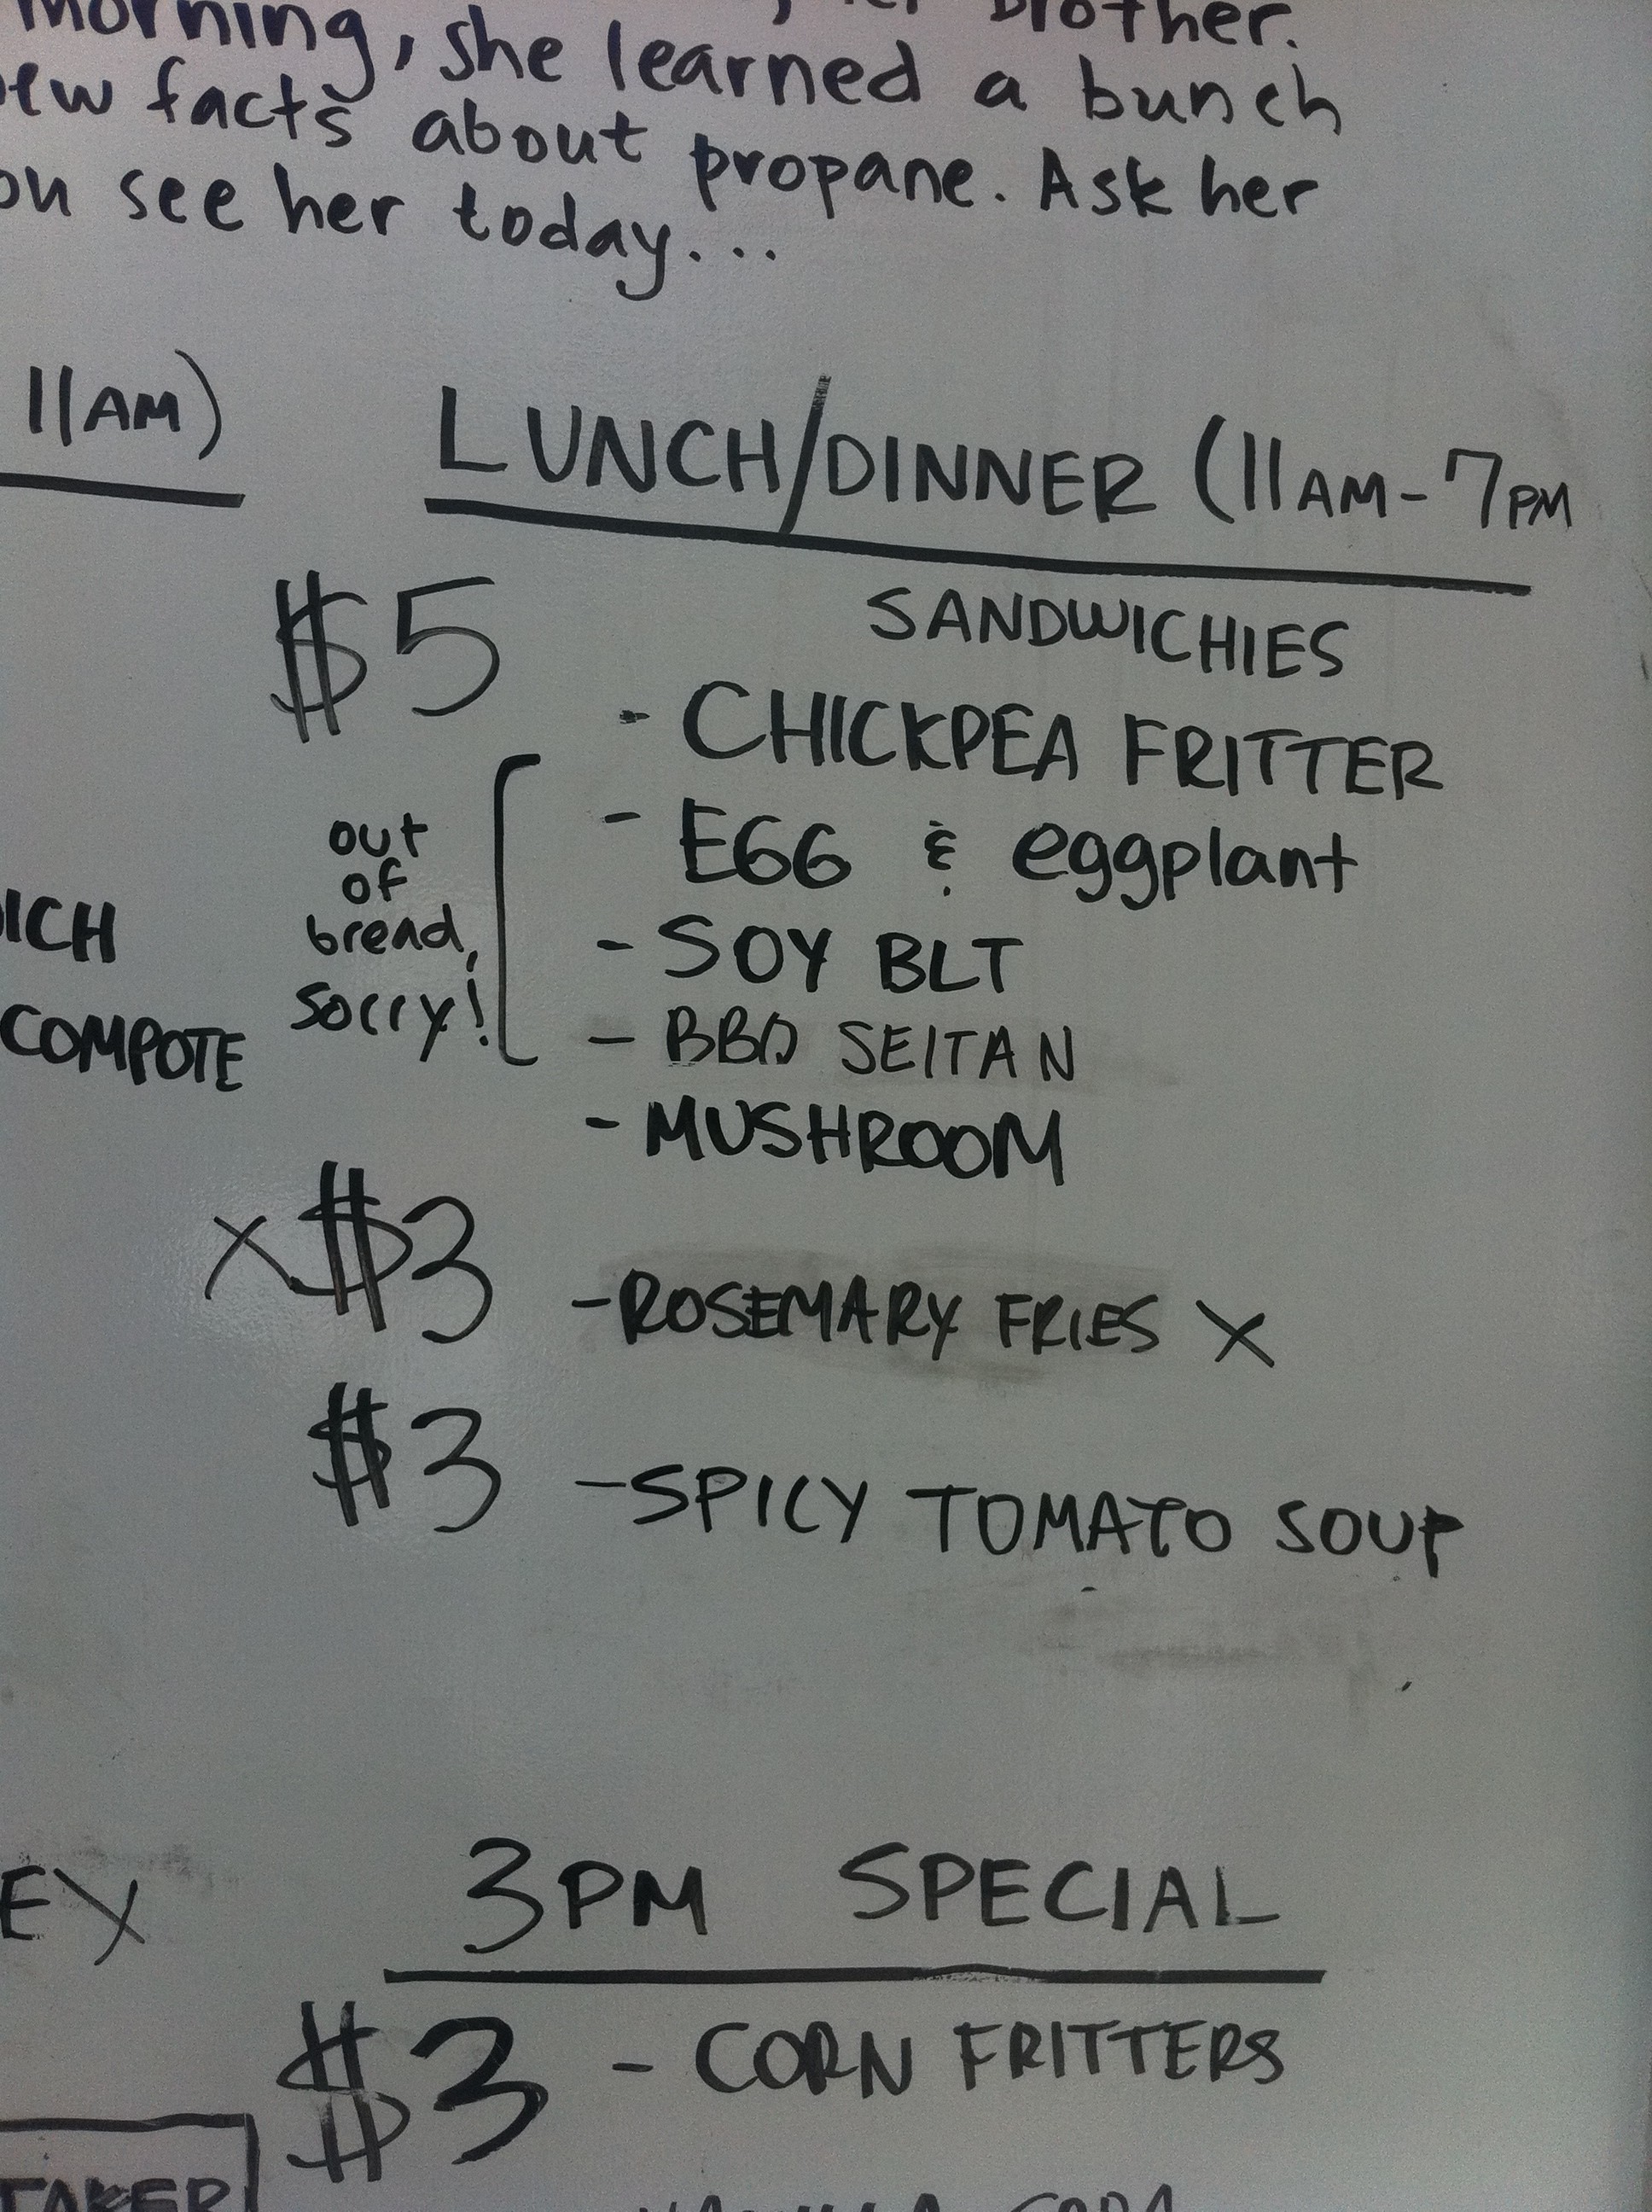 morning, she learned a bunch
brother.
facts about propane. Ask her
see her today...
11AM)
LUNCH/DINNER (11AM-7PM
$5
SANDWICHIES
- CHICKPEA FRITTER
- EGG & eggplant
- SOY BLT
- BBQ SEITAN
- MUSHROOM
out
of
bread,
sorry!
ICH
COMPOTE
X $3 -ROSEMARY FRIES X
$3 -SPICY TOMATO SOUP
EX
3PM SPECIAL
$3 - CORN FRITTERS
TAKER